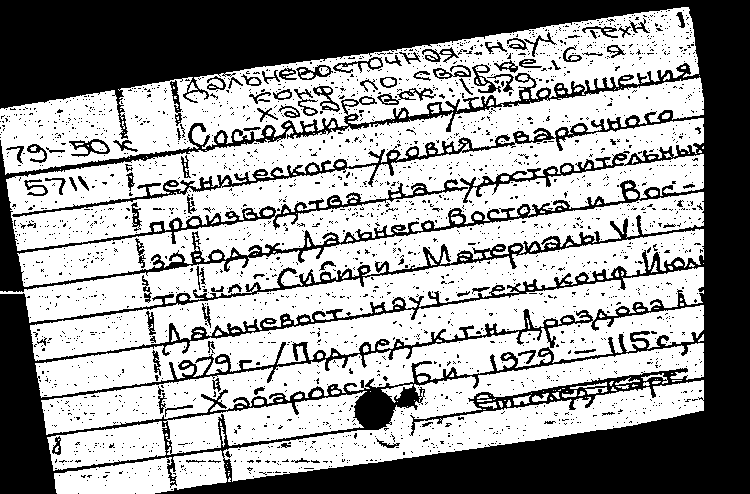 1
Дальневосточная науч.-техн.
конф. по сварке. 6-я.
Хабаровск. 1979.
79-50к Состояние и пути повышения
5711 технического уровня сварочного
производства на судостроительных
заводах Дальнего Востока и Вос-
точной Сибири. Материалы VI
Дальневост. науч.-техн. конф. Июль
1979 г. / Под ред. к.т.н. Дроздова А.
— Хабаровск: Б.и., 1979. — 115 с.,
См. след. карт.
8